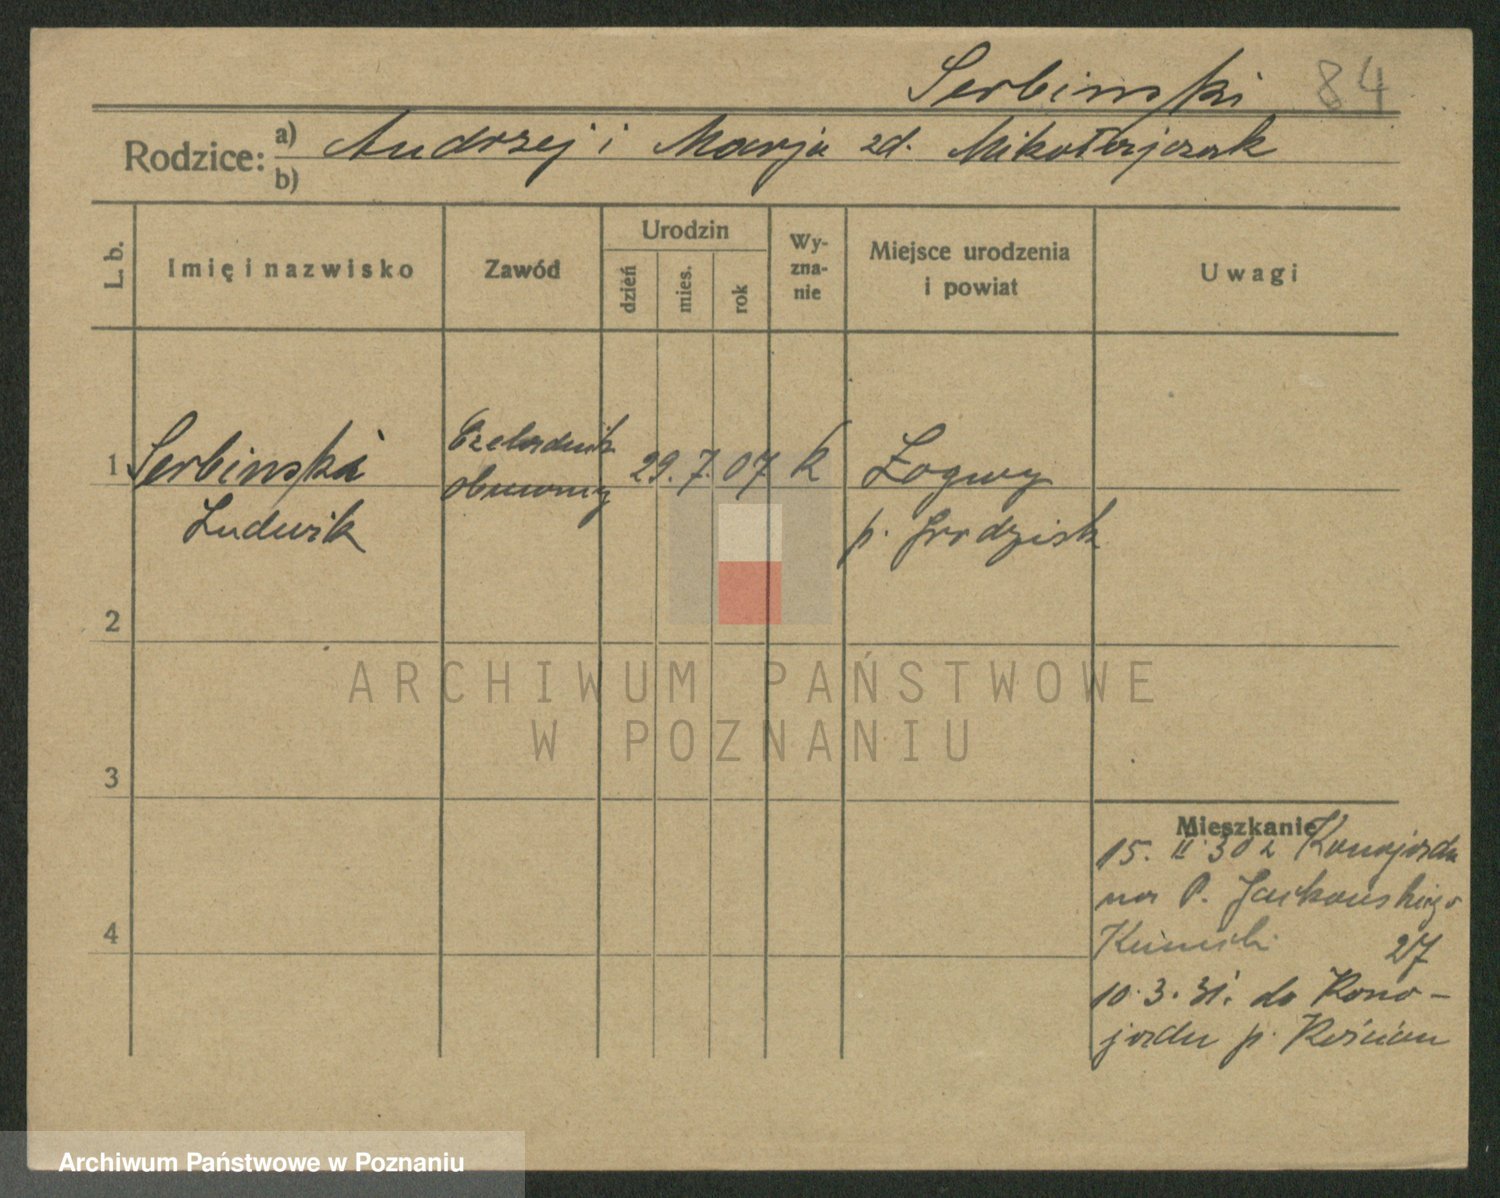 Serbinski 84
Rodzice: a) Andrzej i Marja zd. Mikołajczak
b)
L. b. Imię i nazwisko Zawód Urodzin dzień mies. rok Wy-zna-nie Miejsce urodzenia i powiat Uwagi
1 Serbinski Czeladnik 29. 7. 07 k Łagwy
Ludwik obuwniczy p. Grodzisk
2
ARCHIWUM PAŃSTWOWE
W POZNANIU
3
Mieszkanie
15. II 30 z Konojadu
na P. Jackowskiego
27
4
10. 3. 31. do Kono-
jadu p. Kościan
Archiwum Państwowe w Poznaniu